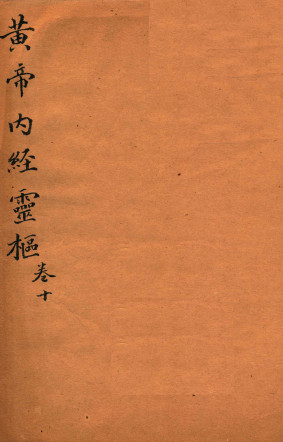 黃帝内經靈樞
卷十